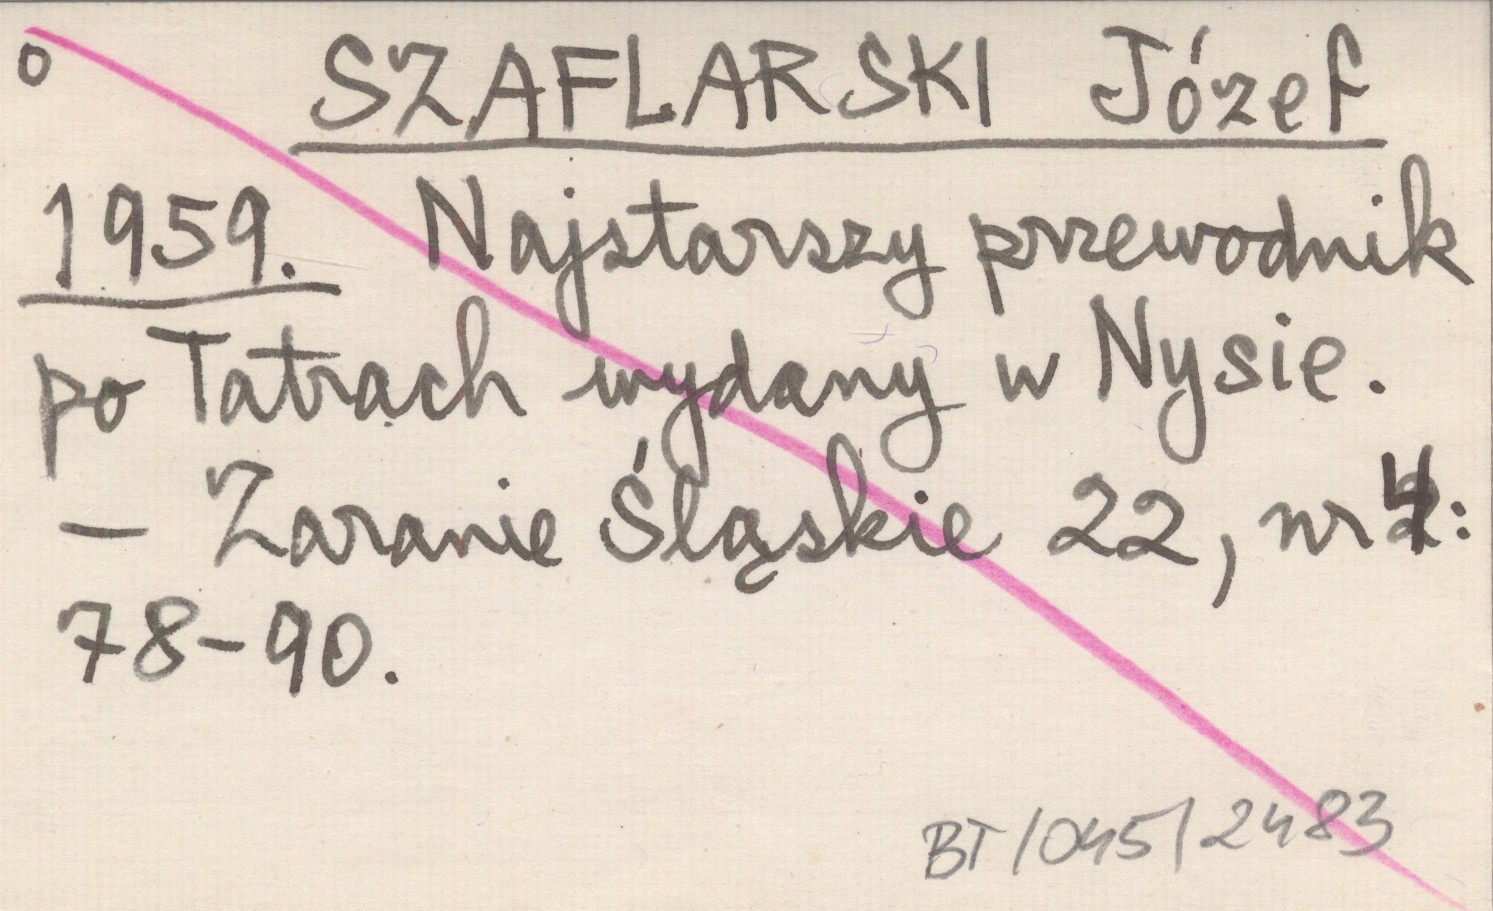 o
SZAFLARSKI Józef
1959. Najstarszy przewodnik
po Tatrach wydany w Nysie.
— Zaranie Śląskie 22, nr 4:
78-90.
BT/045/2483